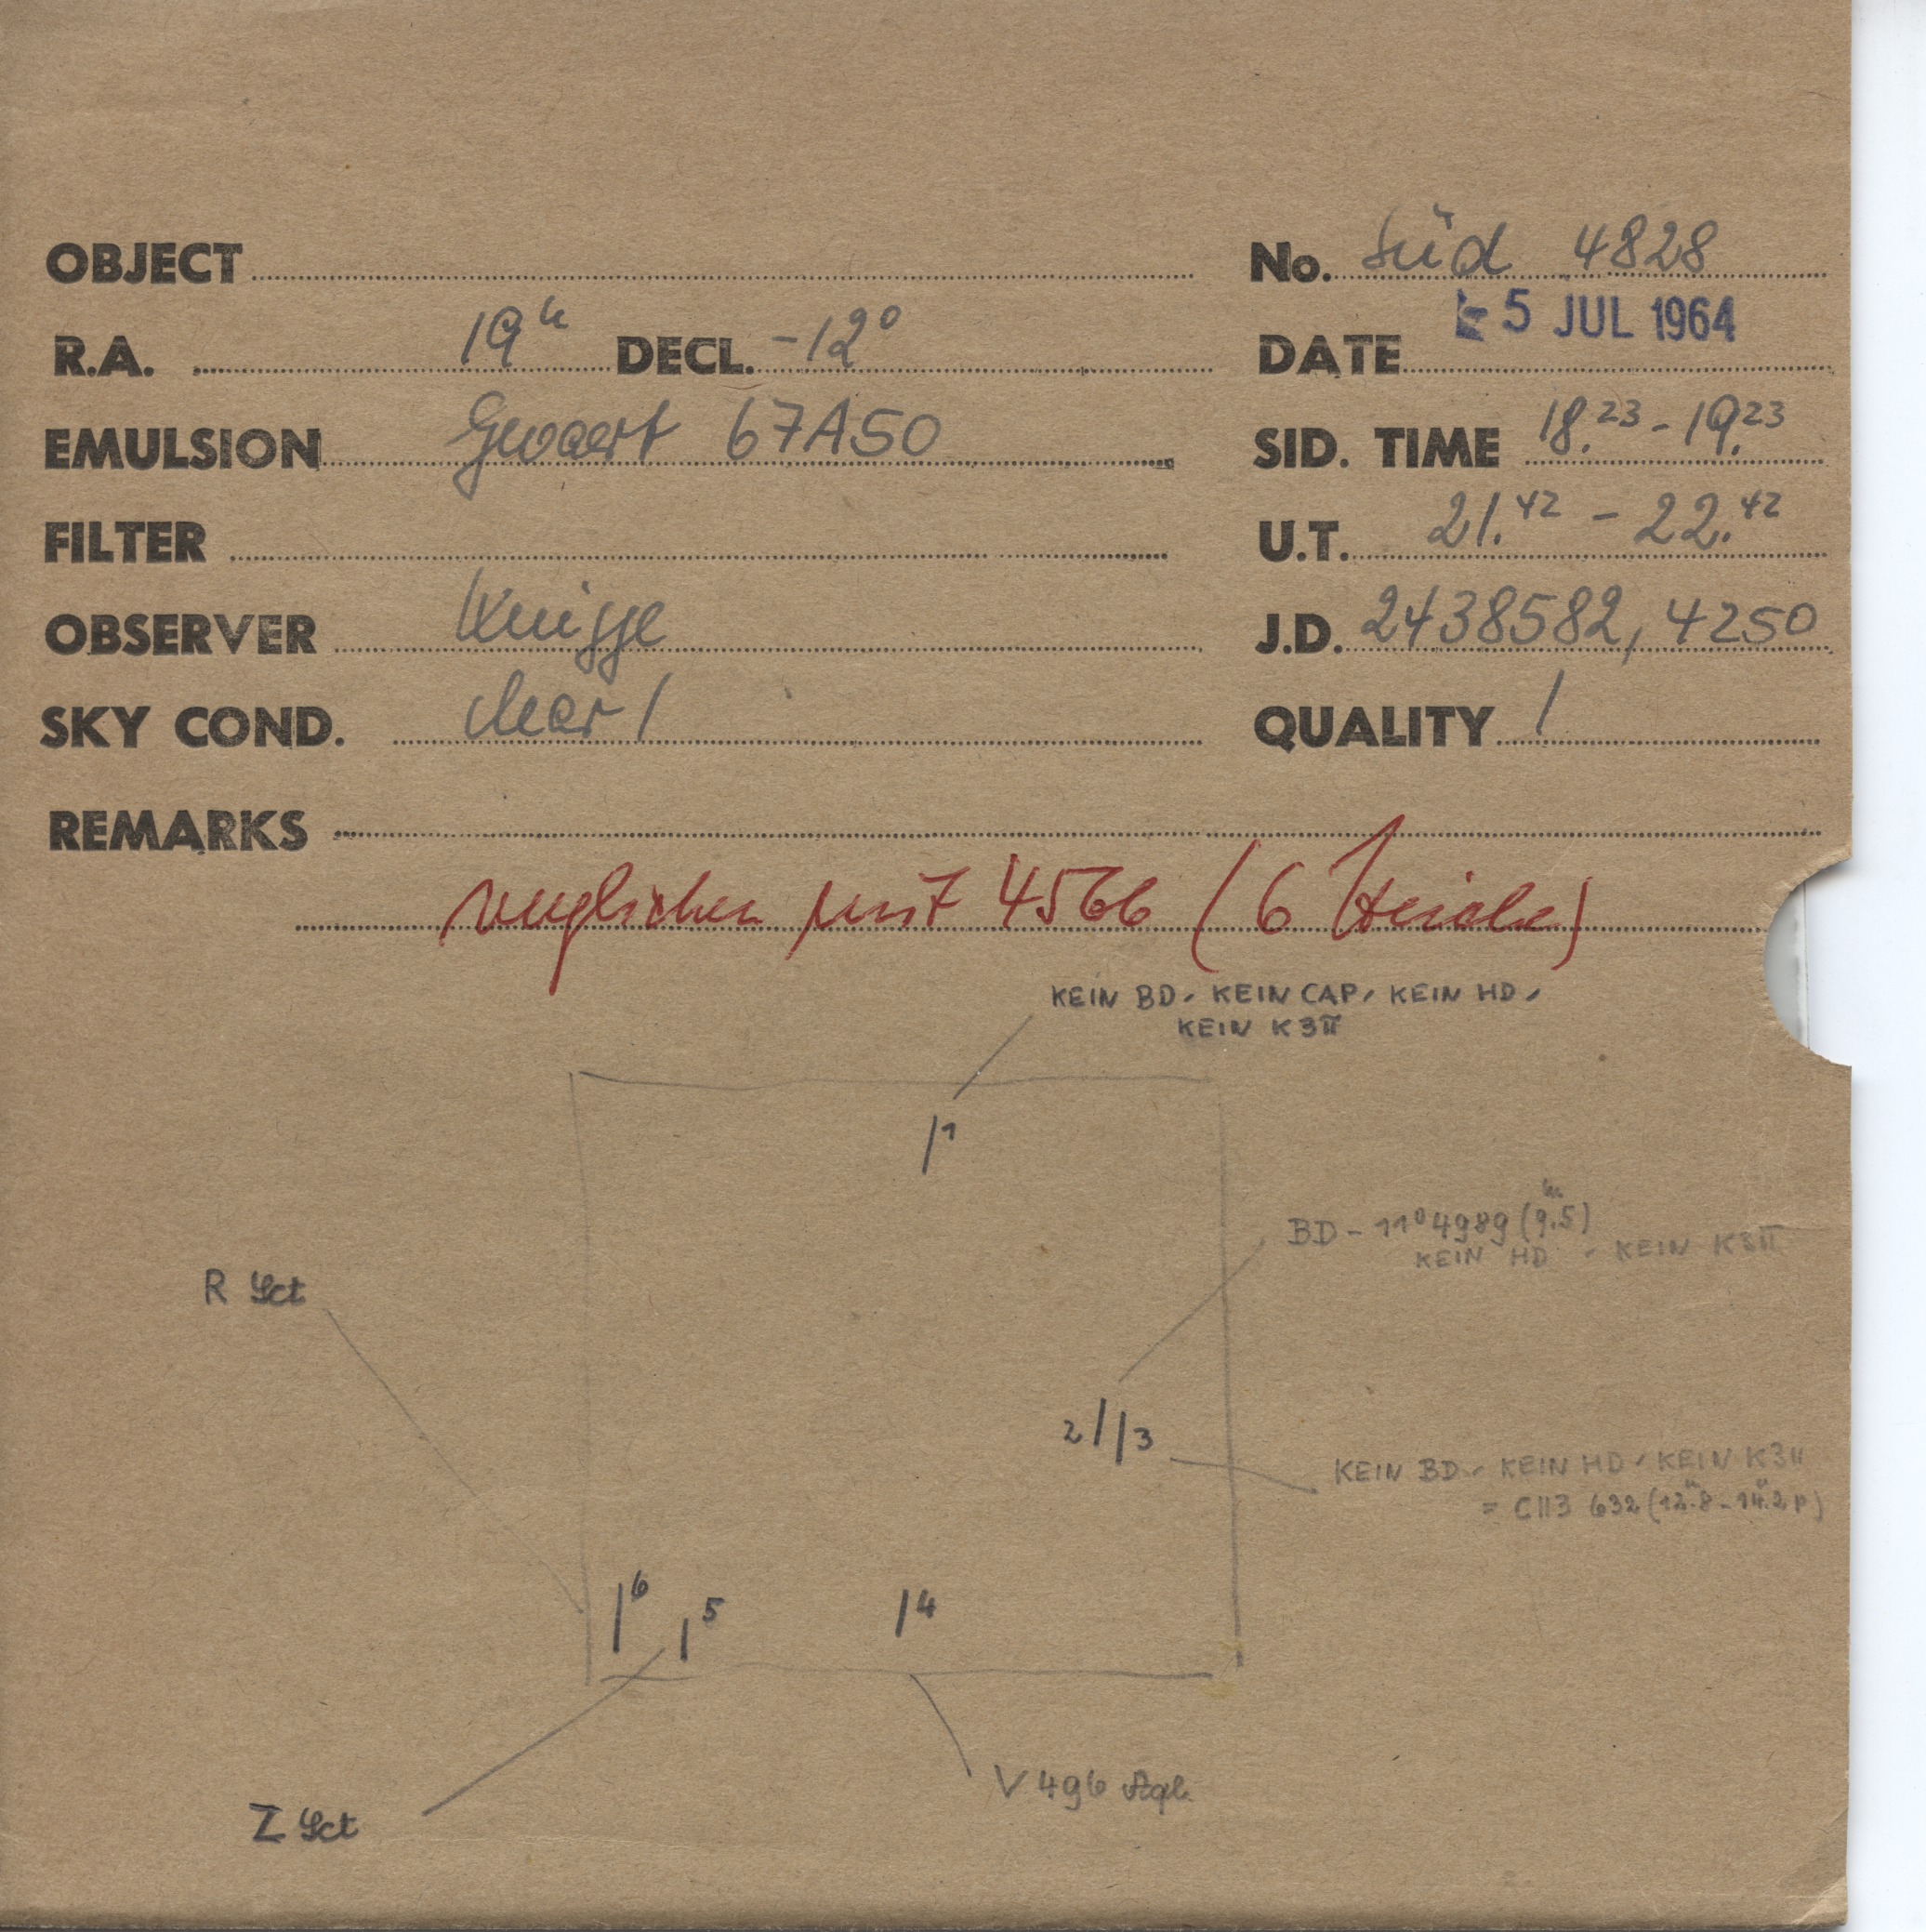 OBJECT No. Süd 4828
R.A. 19h DECL. -12° DATE 5 JUL 1964
EMULSION Gevaert 67A50 SID. TIME 18.23 - 19.23
FILTER U.T. 21.42 - 22.42
OBSERVER Knigge J.D. 2438582,4250
SKY COND. clear 1 QUALITY 1
REMARKS
verglichen mit 4566 (6 Striche)
KEIN BD, KEIN CAP, KEIN HD,
KEIN K3II
1
BD - 11° 4989 (9.5m)
KEIN HD, KEIN K3II
R Sct
2 3
KEIN BD, KEIN HD, KEIN K3II
= СПЗ 632 (12m.8 - 14m.2 p)
6 5 4
V 496 Aql.
Z Sct